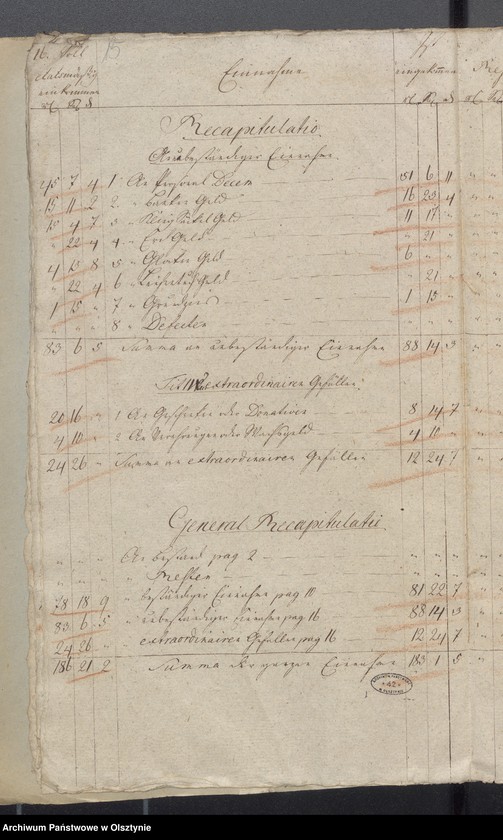 16. Soll 15 ist
Etatsmäßig Einnahme eingekommen
einkommen
Recapitulatio.
Unbeständiger Einnahme.
45 7 4 1 An Personal Decem 51 6 11
15 11 2 2 " Geld 16 23 4
15 4 7 3 " Geld 11 17 "
" 22 4 4 " Geld " 21 "
4 13 8 5 " Glocken Geld 6 " "
" 22 4 6 " Geld " 21 "
1 15 " 7 " Grundzins 1 15 "
" " " 8 " Defecten " " "
83 6 5 Summa an unbeständiger Einnahme 88 14 3
Tit: extraordinairen Gefällen.
20 16 " 1 An Geschenken oder Donativen 8 14 7
4 10 " 2 An oder Wachsgeld 4 10 "
24 26 " Summa an extraordinairen Gefällen 12 24 7
General Recapitulatio.
" " " An Bestand pag 2 " " "
" " " " Resten " " "
78 18 9 " beständiger Einnahme pag 10 81 22 7
83 6 5 " unbeständiger Einnahme pag 16 88 14 3
24 26 " " extraordinairen Gefällen pag 16 12 24 7
186 21 2 Summa der ganzen Einnahme 183 1 5
42
Archiwum Państwowe w Olsztynie